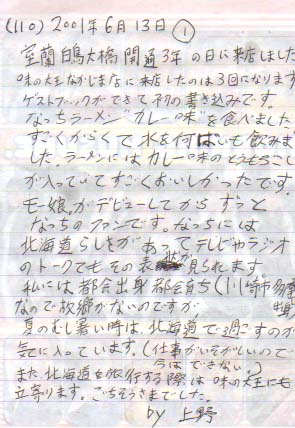 (110) 2001年6月13日 ①
室蘭白鳥大橋開通3年の日に来店しました
味の大王なかじま店に来店したのは3回になります
ゲストブックができて初の書き込みです。
なっちラーメン"カレー味"を食べました
すごくからくて水を何ばいも飲みま
した。ラーメンにはカレー味のとうもろこし
が入っていてすごくおいしかったです。
モー娘。がデビューしてからずっと
なっちのファンです。なっちには
北海道らしさがあってテレビやラジオ
のトークでもその表状が見られます。
私には都会出身都会育ち(川崎市多摩
なので故郷がないのですが、
夏のむし暑い時は、北海道で過ごすのが
気に入っています。(仕事がいそがしいので
今はできない。)
また、北海道を旅行する際は味の大王にも
立寄ります。ごちそうさまでした。
by 上野